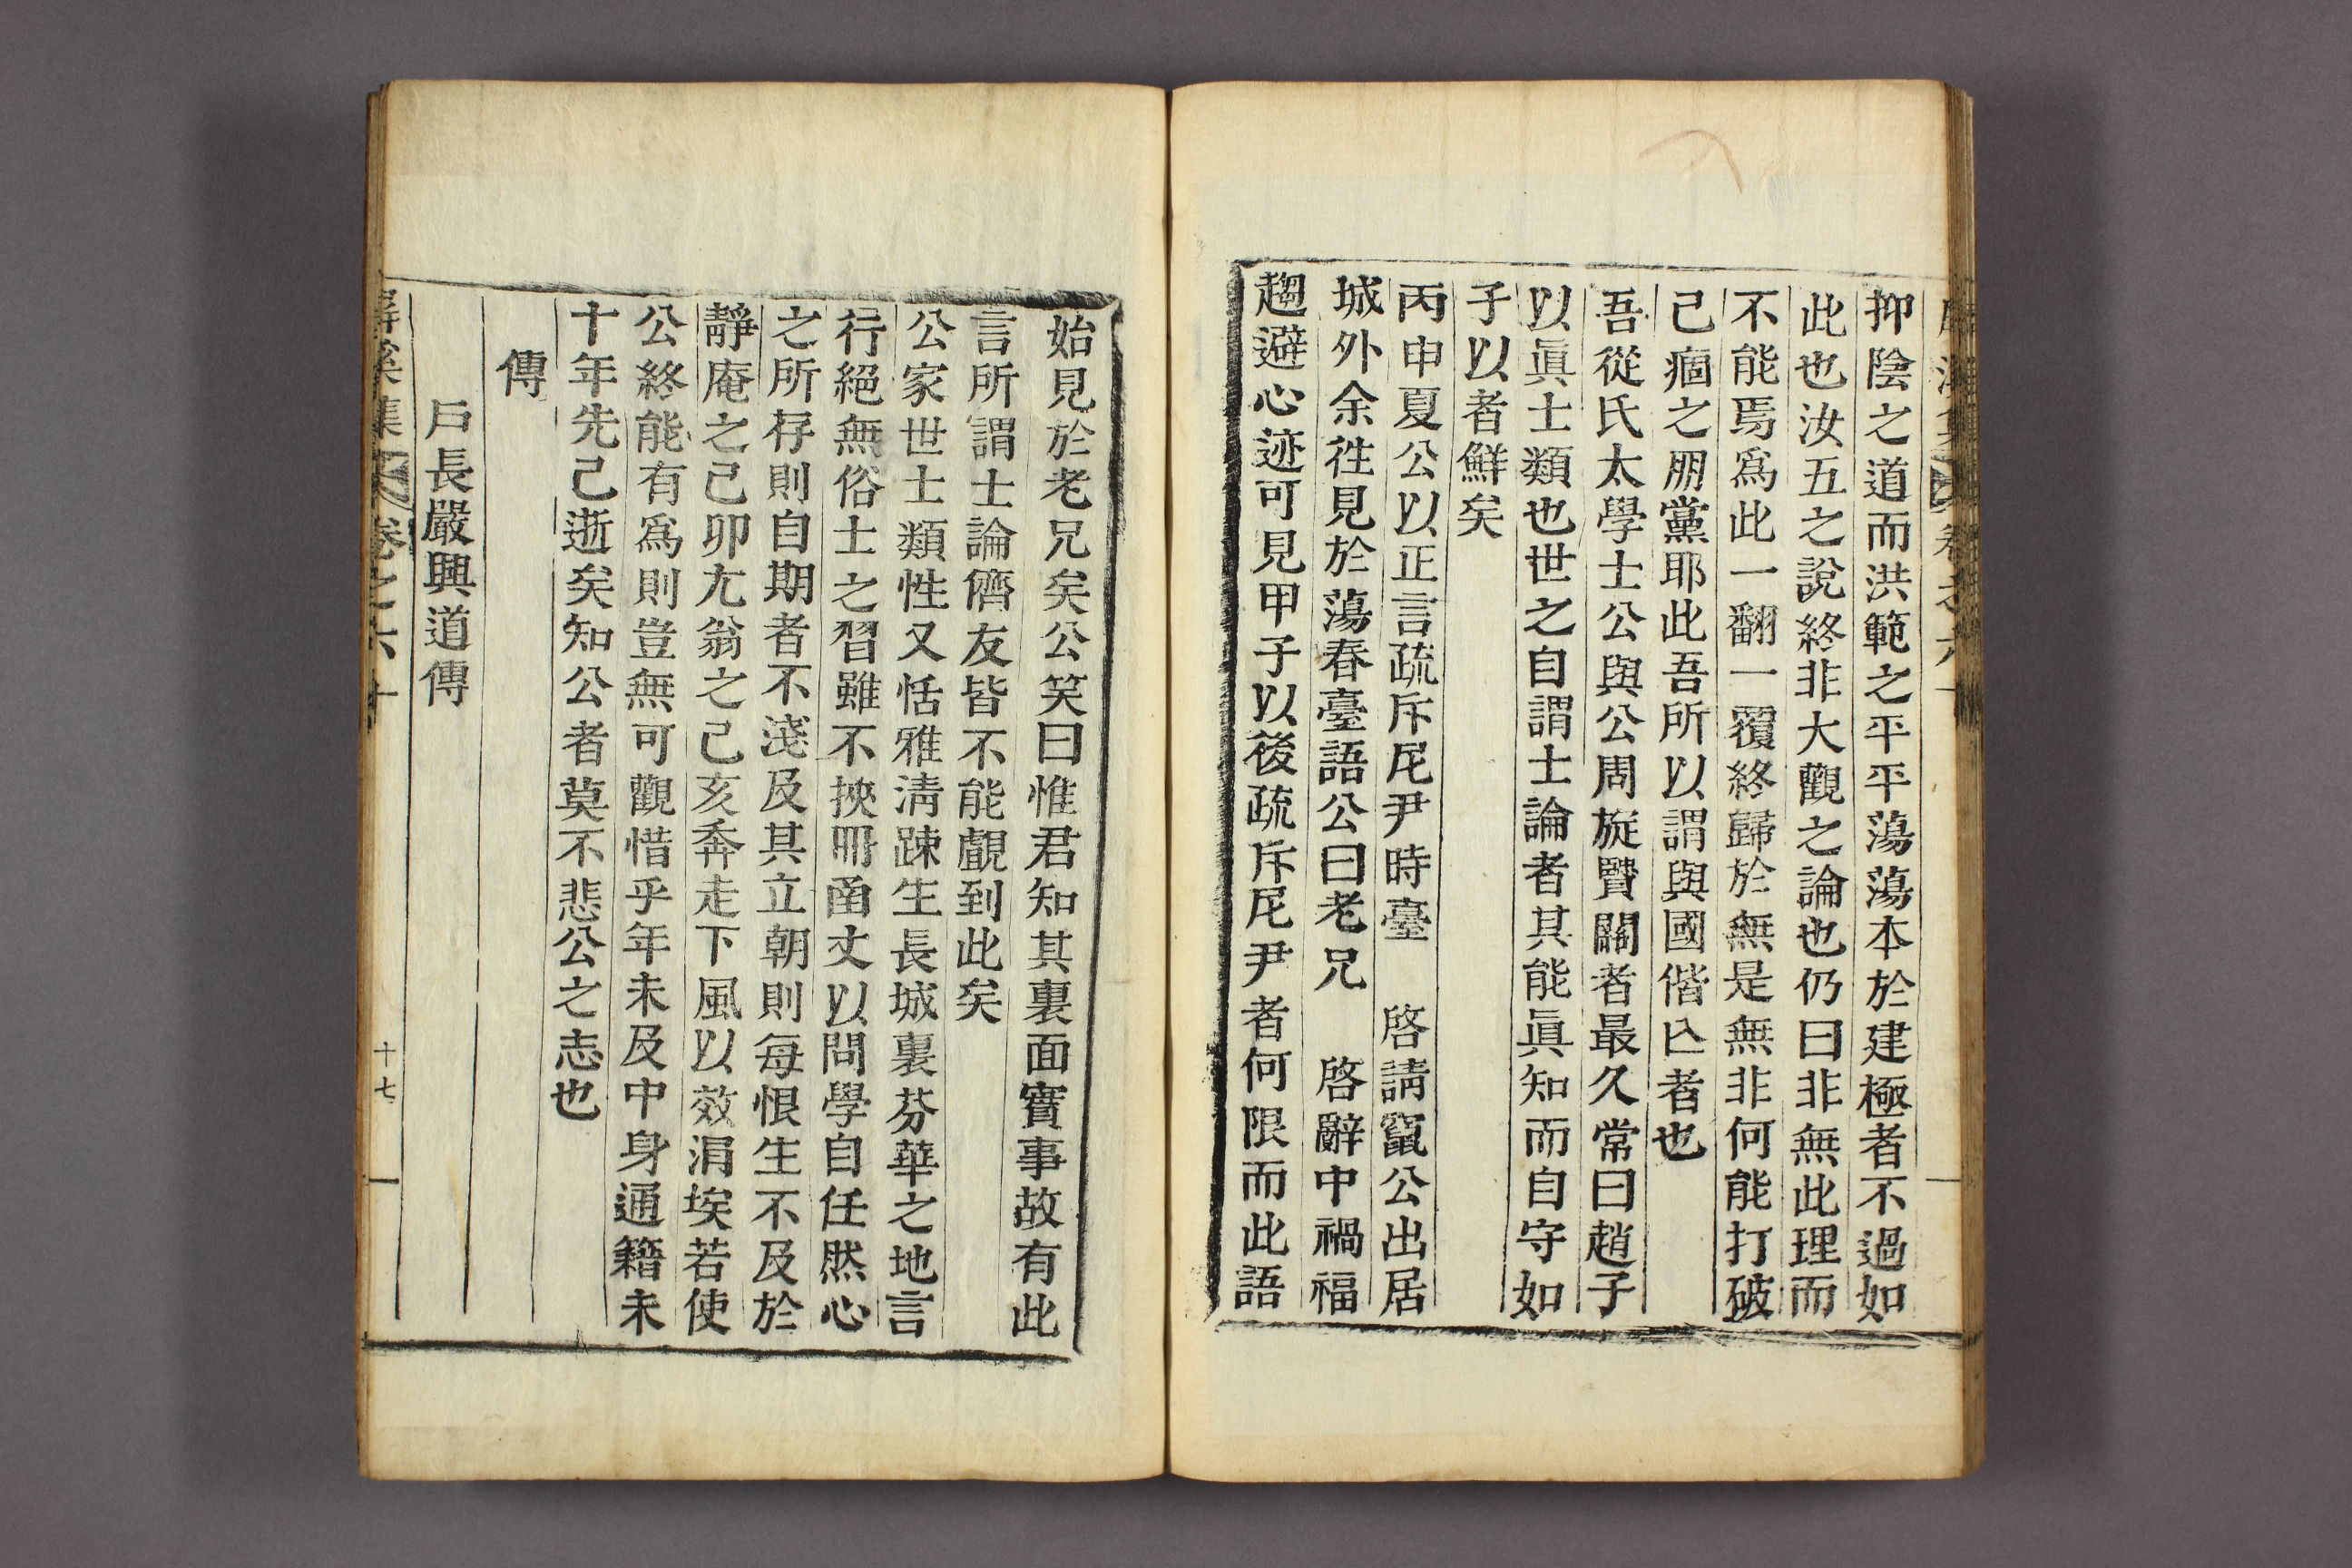 抑陰之道而洪範之平平蕩蕩本於建極者不過如
此也汝五之說終非大觀之論也仍曰非無此理而
不能焉爲此一翻一覆終歸於無是無非何能打破
己痼之朋黨耶此吾所以謂與國偕亾者也
吾從氏太學士公與公周旋賢關者最久常曰趙子
以眞士類也世之自謂士論者其能眞知而自守如
子以者鮮矣
丙申夏公以正言疏斥尼尹時臺 啓請竄公出居
城外余徃見於蕩春臺語公曰老兄 啓辭中禍福
趨避心迹可見甲子以後疏斥尼尹者何限而此語
始見於老兄矣公笑曰惟君知其裏面實事故有此
言所謂士論儕友皆不能覰到此矣
公家世士類性又恬雅淸踈生長城裏芬華之地言
行絕無俗士之習雖不挾冊凾丈以問學自任然心
之所存則自期者不淺及其立朝則每恨生不及於
靜庵之己卯尤翁之己亥奔走下風以效涓埃若使
公終能有爲則豈無可觀惜乎年未及中身通籍未
十年先己逝矣知公者莫不悲公之志也
傳
戶長嚴興道傳
屛溪集 卷之六十 十七